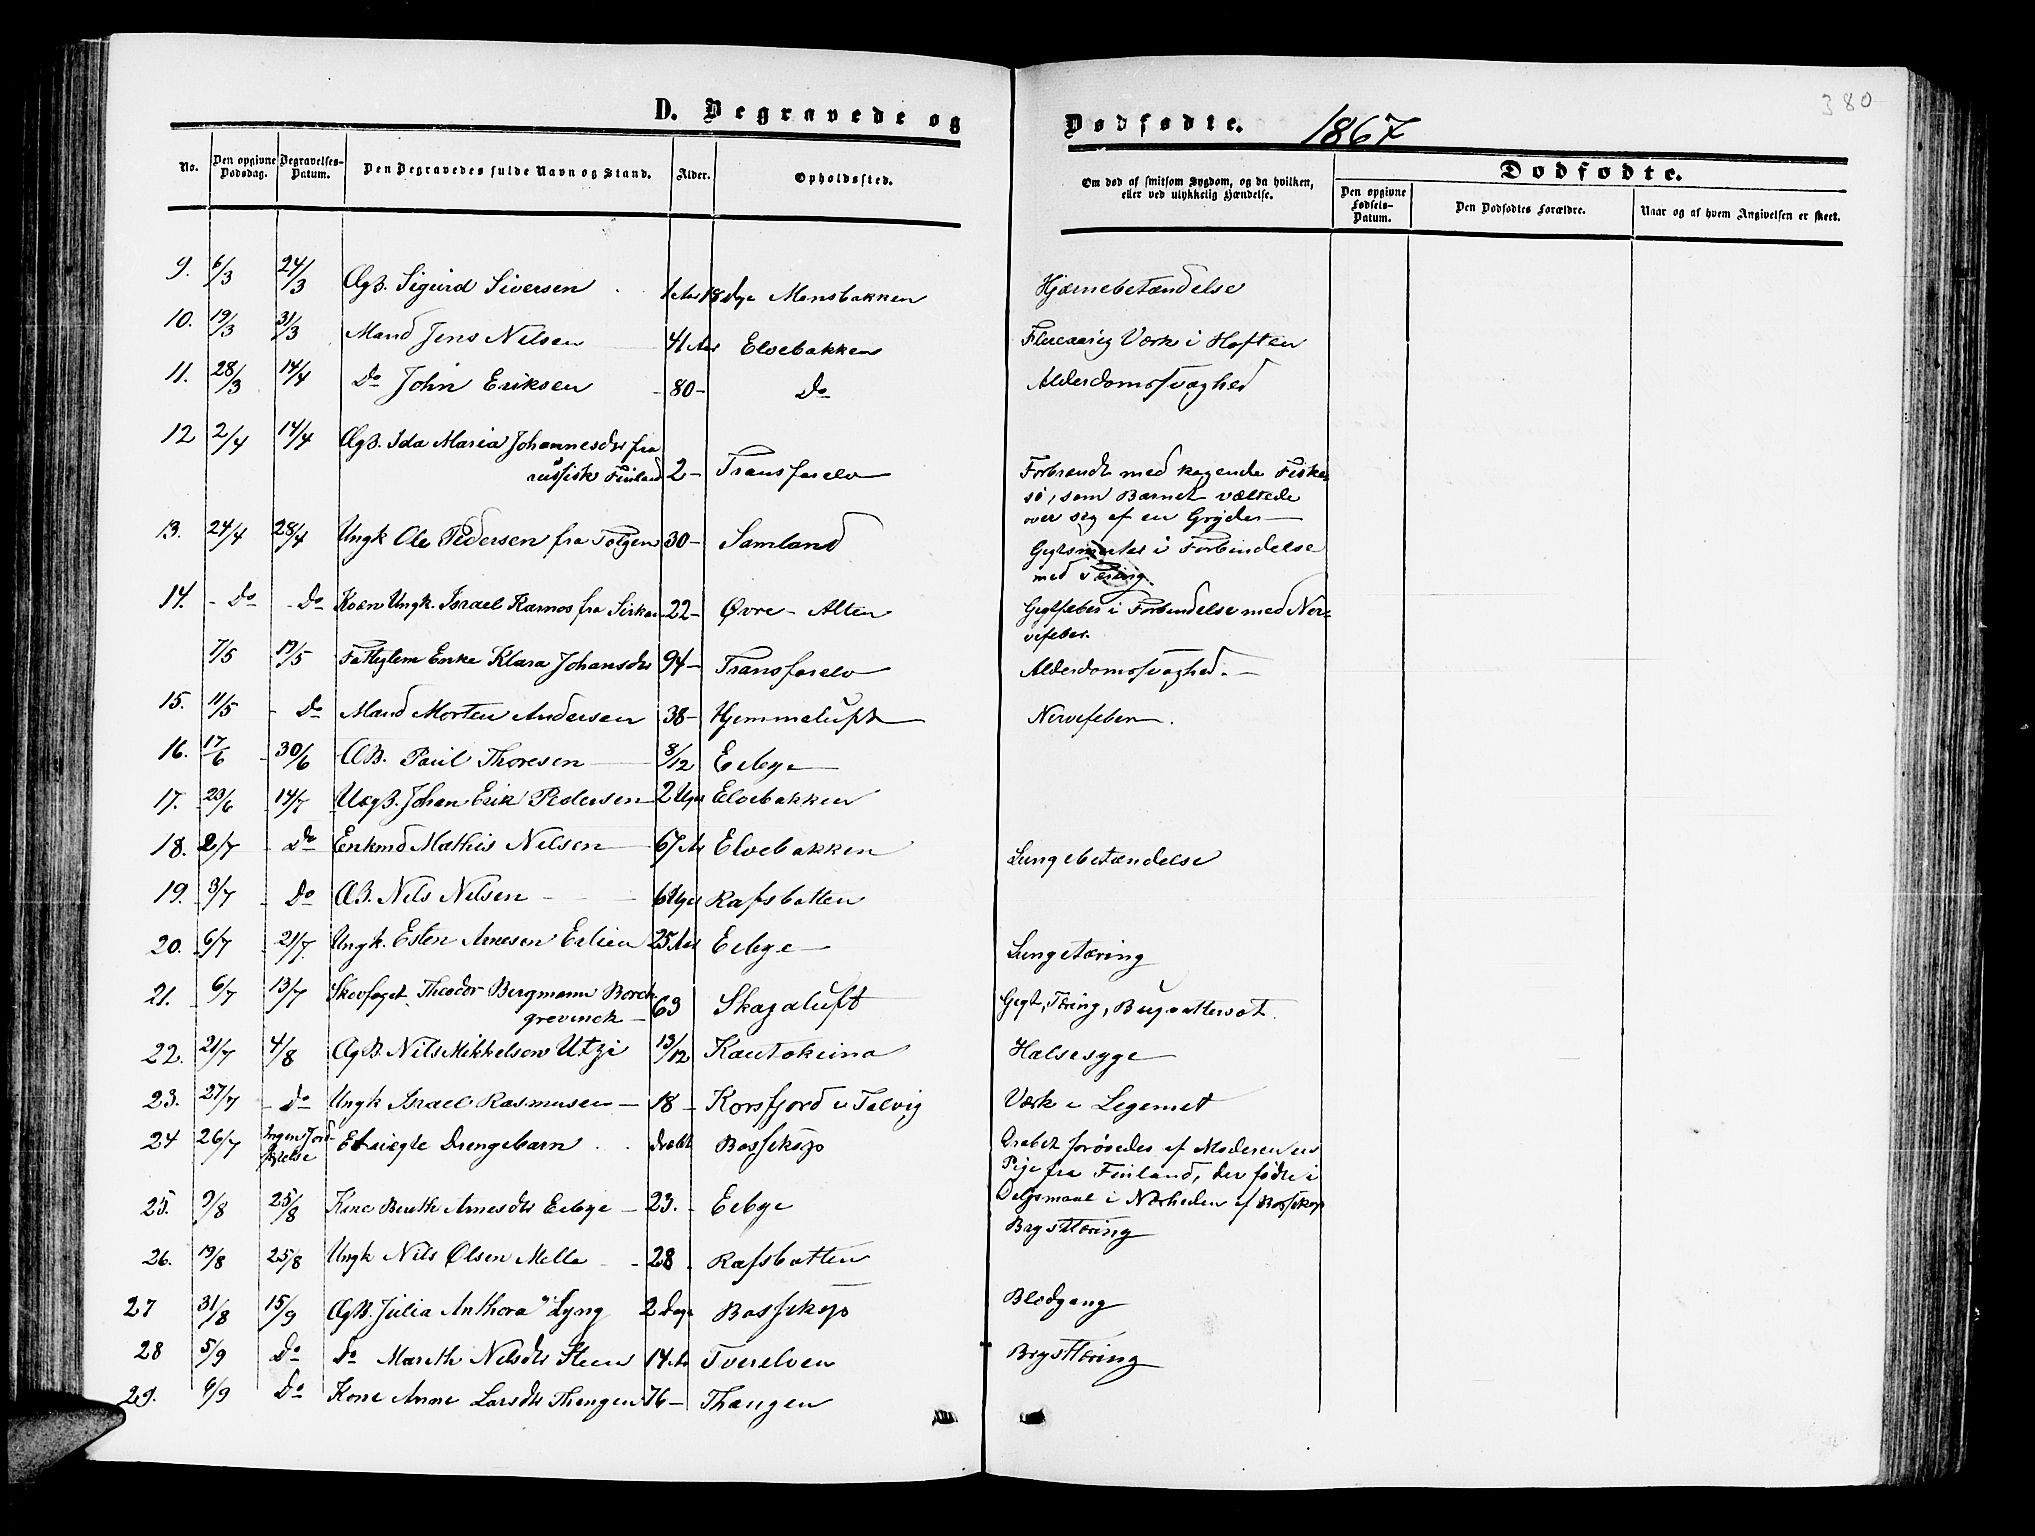 380
D. Begravede og Dødfødte. 1867
No.
Den opgivne Dødsdag.
Begravelses-Datum.
Den Begravedes fulde Navn og Stand.
Alder.
Opholdssted.
Om død af smitsom Sygdom, og da hvilken,
eller ved ulykkelig Hændelse.
Dødfødte.
Den opgivne Fødsels-Datum.
Den Dødfødtes Forældre.
Naar og af hvem Angivelsen er skeet.
9. 6/3 24/3 ÆgB. Sigurd Siversen 1 Aar 18 Dge Monsbakken Hjærnebetændelse
10. 19/3 31/3 Mand Jens Nilsen 41 Aar Elvebakken Fleraarig Værk i Hoften
11. 28/3 14/4 Do John Eriksen - 80 - Do Alderdomssvaghed
12 2/4 14/4 ÆgB. Ida Maria Johannesdtr fra
russisk Finland 2 - Transfarelv Forbrændt med kogende Fiske-
sø, som Barnet væltede
over sig af en Gryde
13. 24/4 28/4 Ungk Ole Pedersen fra Tolgen 30 - Samland Gigtsmerter i Forbindelse
med Tæring
14. - Do - Do Kvæn Ungk. Israel Karnos fra 22 - Øvre - Alten Gigtfeber i Forbindelse med Ner-
vefeber.
7/5 19/5 Fattiglem Enke Klara Johansdtr 94 - Transfarelv Alderdomssvaghed. -
15. 11/5 - Do Mand Morten Andersen 38 - Hjemmeluft Nervefeber.
16. 17/6 30/6 ÆB. Paul Thoresen 8/12 Eebye
17. 23/6 14/7 UægB. Johan Erik Pedersen 2 Uger Elvebakken
18. 2/7 Do Enkmd Mathis Nilsen 67 Aar Elvebakken Lungebetændelse
19. 3/7 Do ÆB. Nils Nilsen 6 Uger Rafsbotten
20. 6/7 21/7. Ungk. Esten Arnesen Eelien 25 Aar Eebye Lungetæring
21. 6/7 13/7 Skovfoget Theodor Bergmann Borch
grevinck 63 Skagaluft Gigt, Tæring, Bugvattersot.
22. 21/7 4/8 ÆgB. Nils Mikkelsen Utzi 13/12 Kautokeino Halsesyge
23. 27/7 - Do Ungk Israel Rasmusen 18 - Korsfjord i Talvig Værk i Legemet
24 26/7 Ingen Jord-
Et uægte Drengebarn dræbt Bossekop Drabet forøvedes af Moderen en
Pige fra Finland, der fødte i
Dølgsmaal i Nærheden af Bossekop
25. 9/8 25/8 Kone Berith Arnesdtr Eebye 23. - Eebye Brysttæring
26. 19/8 25/8 Ungk Nils Olsen Melle 28 - Rafsbotten
27 31/8 15/9 ÆgB. Julia Anthora Lyng 2 Dage Bossekop Blodgang
28 5/9 Do Do Mareth Nilsdtr Steen 14 Aar Tverelven Brysttæring
29. 6/9 Do Kone Anne Larsdtr Thangen 76 - Thangen